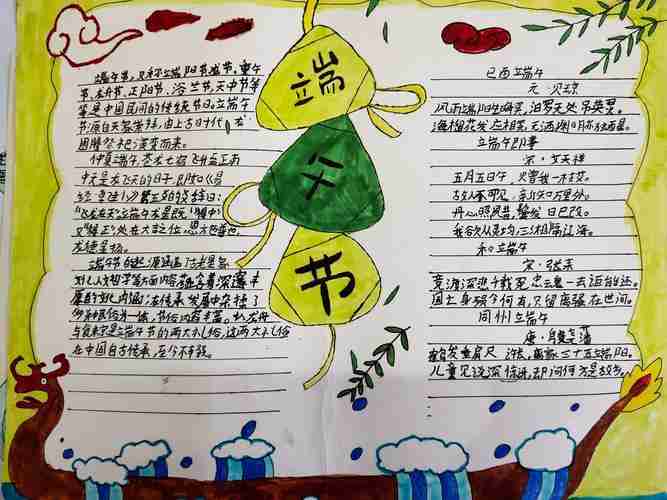 端
午
节
端午节,又称端阳节、龙节、重午
节、龙舟节、正阳节、浴兰节、天中节等
等是中国民间的传统节日。端午
节源自天象崇拜,由上古时代龙
图腾祭祀演变而来。
仲夏端午,苍龙七宿飞升至正南
中天,是龙飞天的日子,即如《易
经·乾卦》第五爻的爻辞曰:
"飞龙在天"。端午龙星既"得中"
又"得正",处在大吉之位,
端午节的起源涵盖古老星象
文化、人文哲学等方面内容,蕴含着深邃丰
厚的文化内涵;在传承发展中杂揉了
多种民俗为一体,节俗内容丰富。扒龙舟
与食粽是端午节的两大礼俗,这两大礼俗
在中国自古传承,至今不辍。
已酉端午
元·贝琼
风雨端阳生晦冥,汨罗无处吊英灵。
海榴花发应相笑,无酒渊明亦独醒。
端午即事
宋·文天祥
五月五日午,赠我一枝艾。
故人不可见,新知万里外。
丹心照夙昔,鬓发日已改。
我欲从灵均,三湘隔辽海。
和端午
宋·张耒
竞渡深悲千载冤,忠魂一去讵能还。
国亡身殒今何有,只留离骚在世间。
同州端午
唐·殷尧藩
鹤发垂肩尺许长,离家三十五端阳。
儿童见说深惊讶,却问何方是故乡。